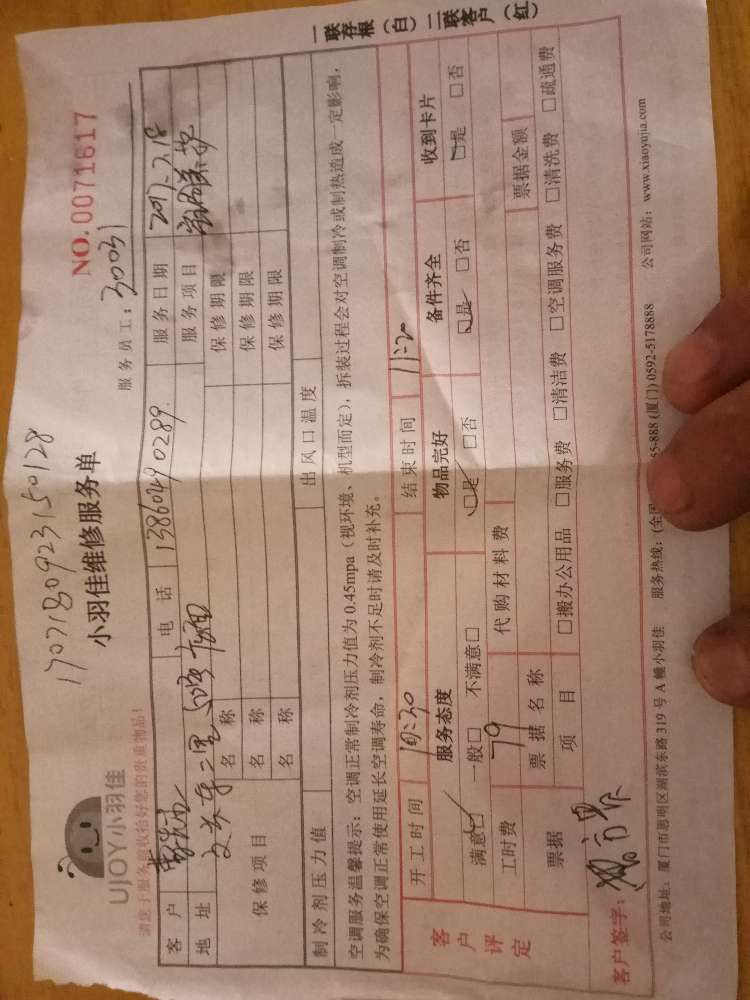 1707180923150128
UJOY小羽佳
小羽佳维修服务单
NO.0071617
请您于服务前收拾好您的贵重物品！
服务员工：30031
客户
电话 13860490289.
服务日期 2017.7.18
地址
服务项目
保修项目
名称
保修期限
名称
保修期限
名称
保修期限
制冷剂压力值
出风口温度
空调服务温馨提示：空调正常制冷剂压力值为0.45mpa（视环境、机型而定），拆装过程会对空调制冷或制热造成一定影响，
为确保空调正常使用延长空调寿命，制冷剂不足时请及时补充。
客户评定
开工时间 10:30
结束时间 11:20
服务态度
物品完好
备件齐全
收到卡片
满意□ 一般□ 不满意□
□是 □否
□是 □否
□是 □否
工时费 79
代购材料费
票据
票据名称
票据金额
项目
□搬办公用品 □服务费 □清洁费 □空调服务费 □清洗费 □疏通费
客户签字：
公司地址：厦门市思明区湖滨东路319号A幢小羽佳
服务热线：(全国 55-888 (厦门) 0592-5178888
公司网站：www.xiaoyujia.com
一联存根（白）二联客户（红）